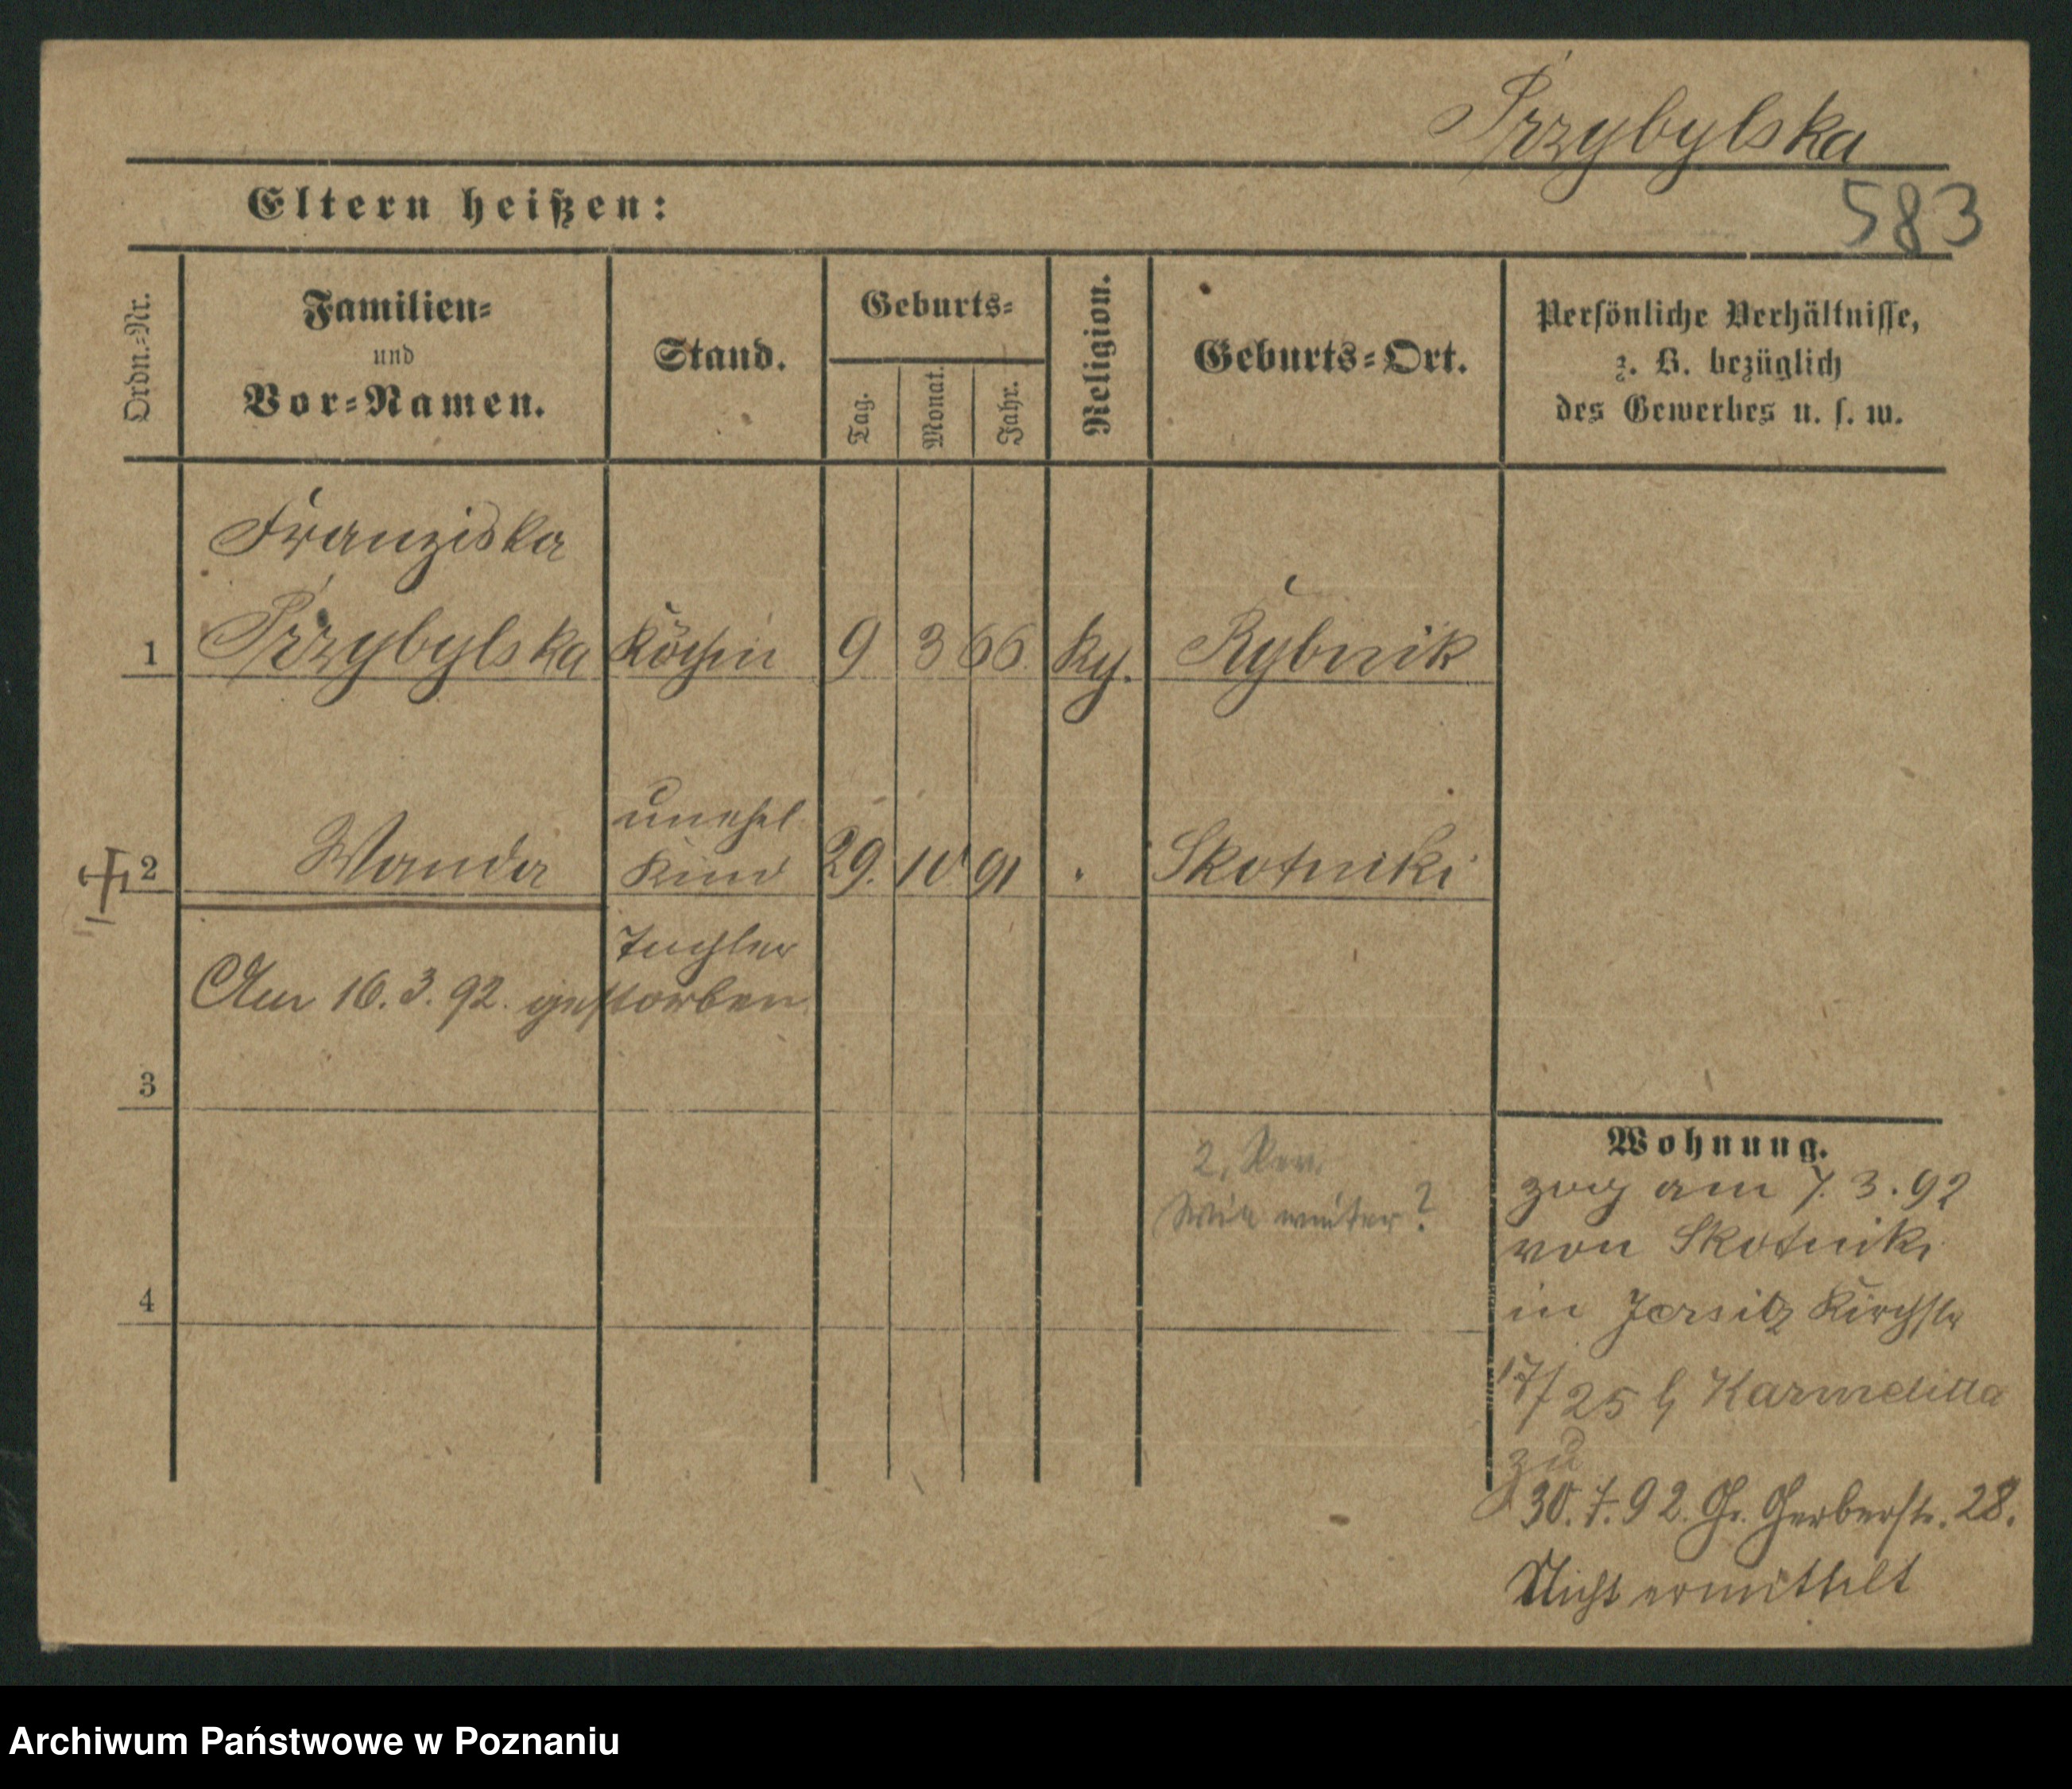 Przybylska
583
Eltern heißen:
Ordn.=Nr.
Familien=
und
Vor=Namen.
Stand.
Geburts=
Tag.
Monat.
Jahr.
Religion.
Geburts=Ort.
Persönliche Verhältnisse,
z. B. bezüglich
des Gewerbes u. s. w.
Franziska
1 Przybylska Köchin 9 3 66. Rybnik
unehel
2 Wanda Kind 29. 10 91 Skotniki
Am 16.3.92. gestorben
3
4
2. Rev.
Wie weiter?
Wohnung.
zog am 7.3.92
von Skotniki
in Jersitz Kirchstr
17/25 b/ Karmelitta
zu
30.7.92. Gr. Gerberstr. 28.
Nicht ermittelt
Archiwum Państwowe w Poznaniu